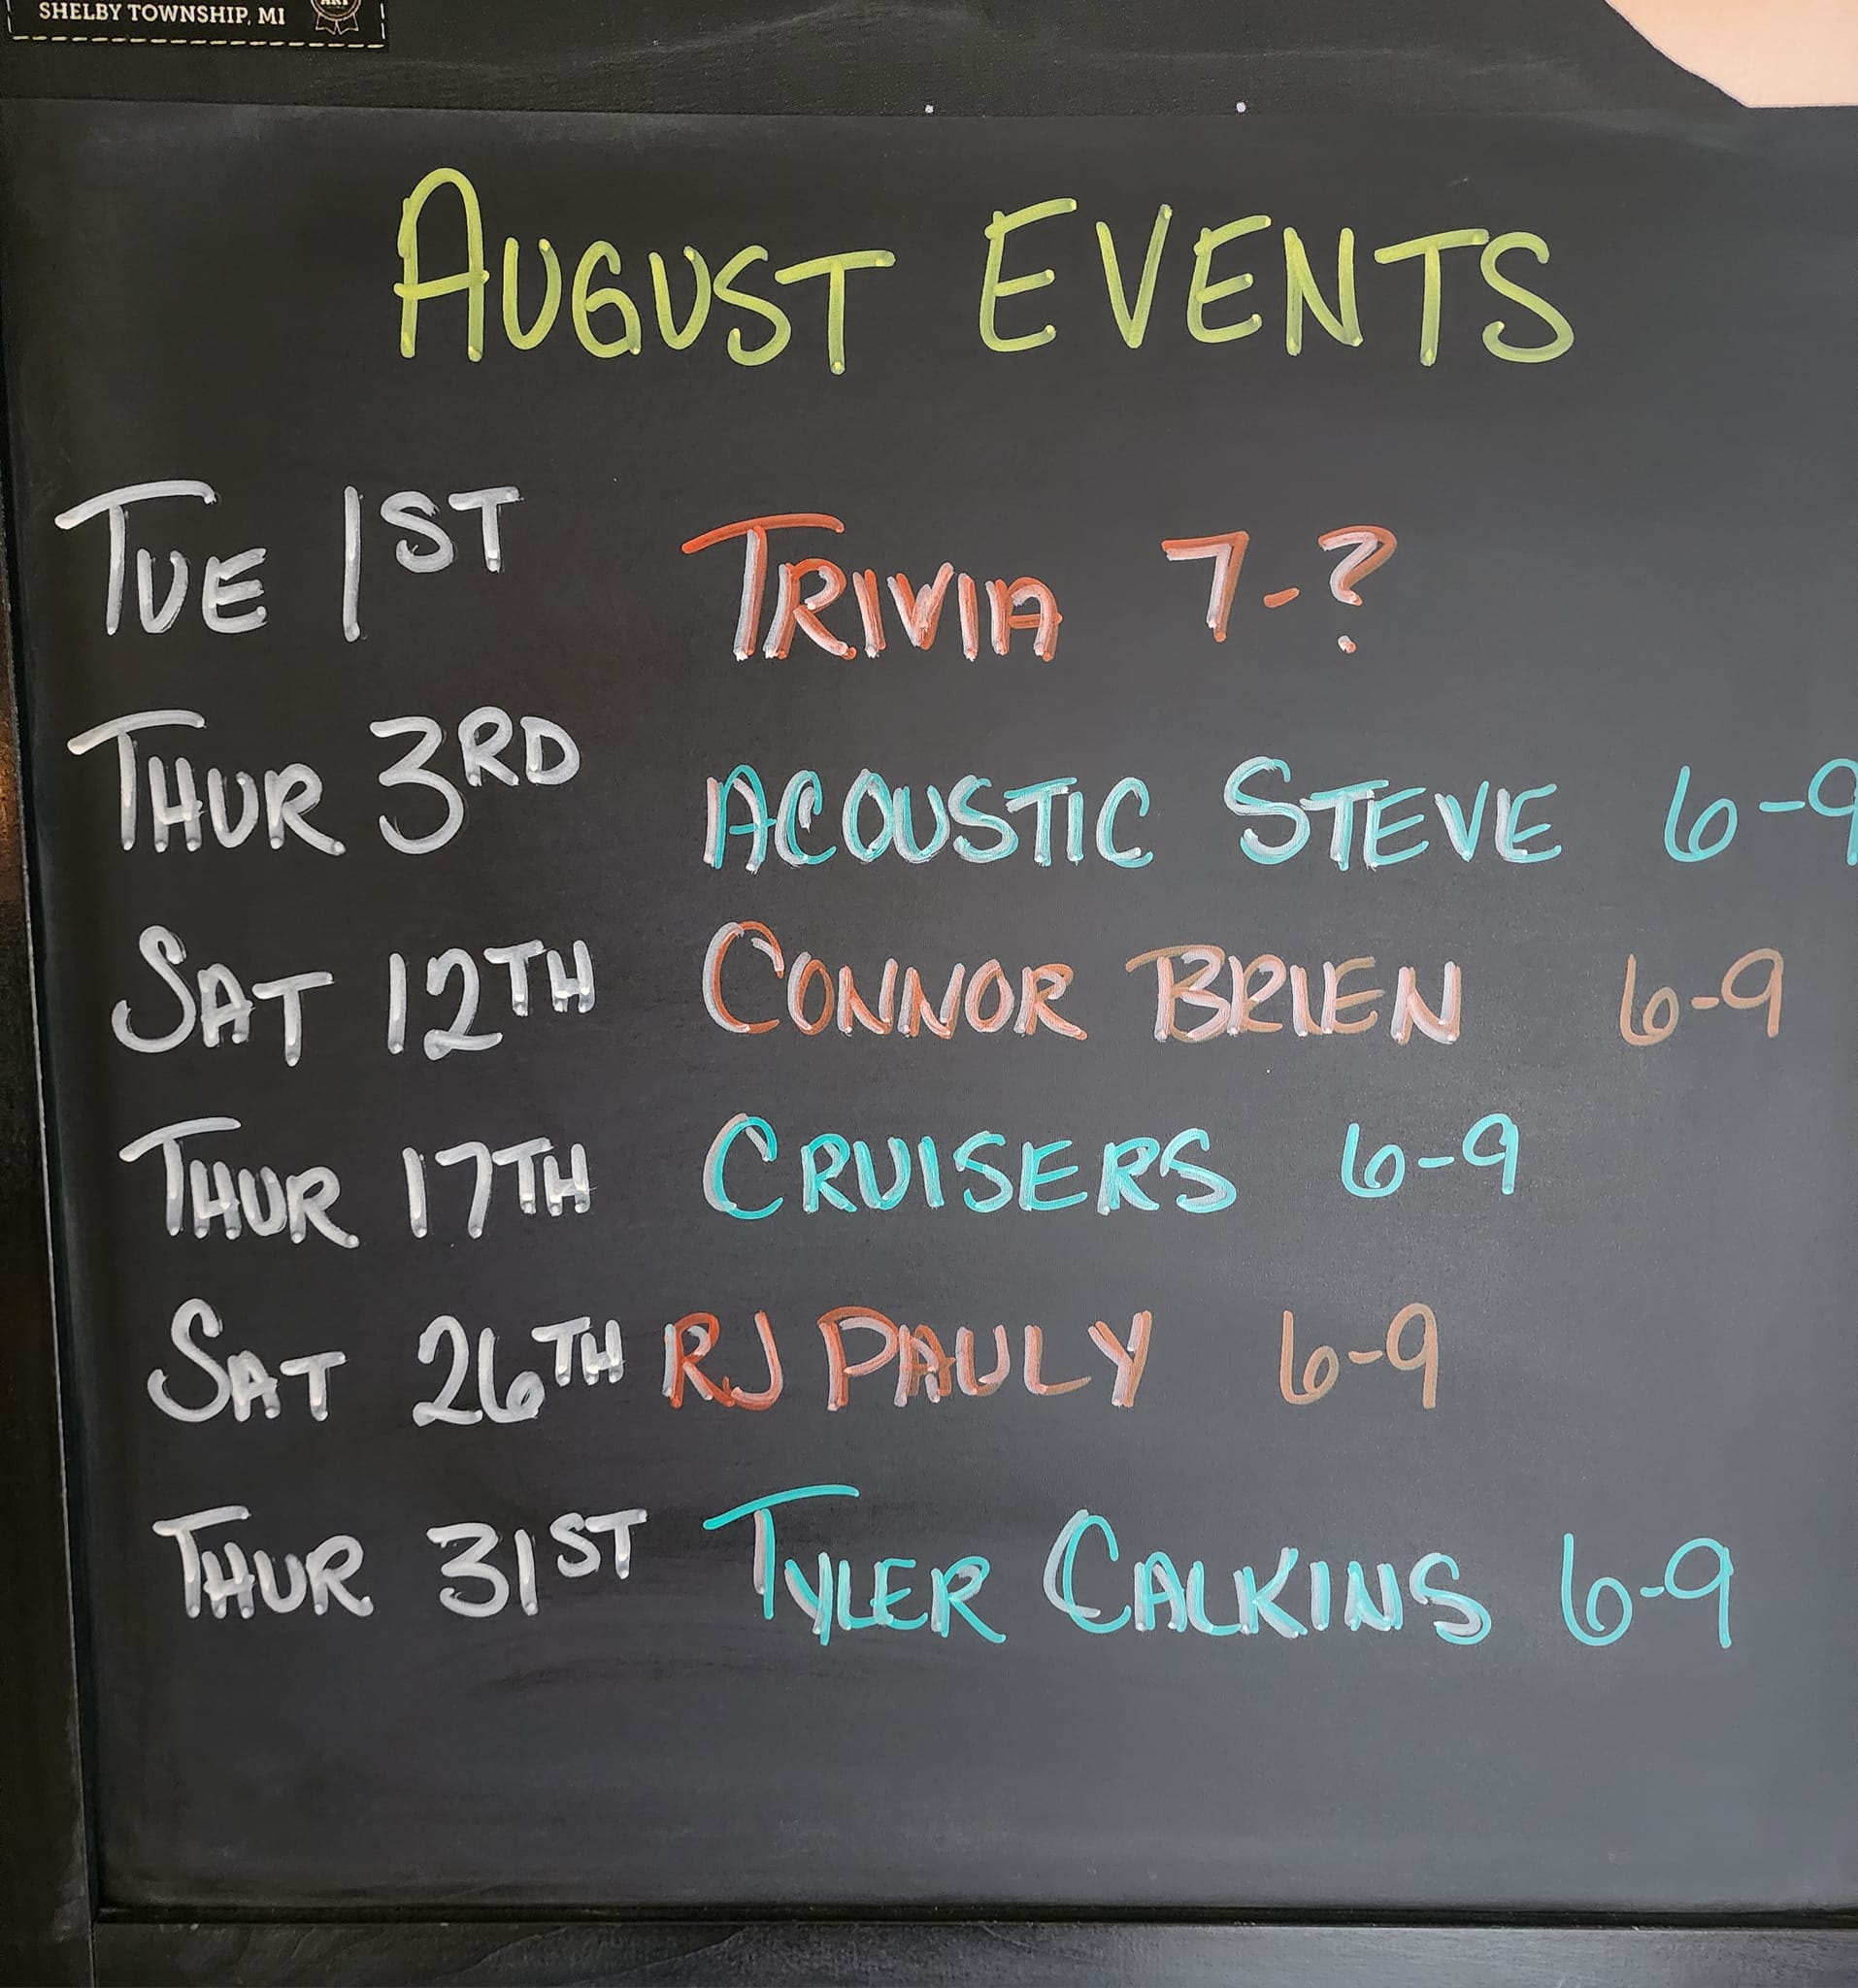 SHELBY TOWNSHIP, MI
ART
AUGUST EVENTS
TUE 1ST TRIVIA 7-?
THUR 3RD ACOUSTIC STEVE 6-9
SAT 12TH CONNOR BRIEN 6-9
THUR 17TH CRUISERS 6-9
SAT 26TH RJ PAULY 6-9
THUR 31ST TYLER CALKINS 6-9